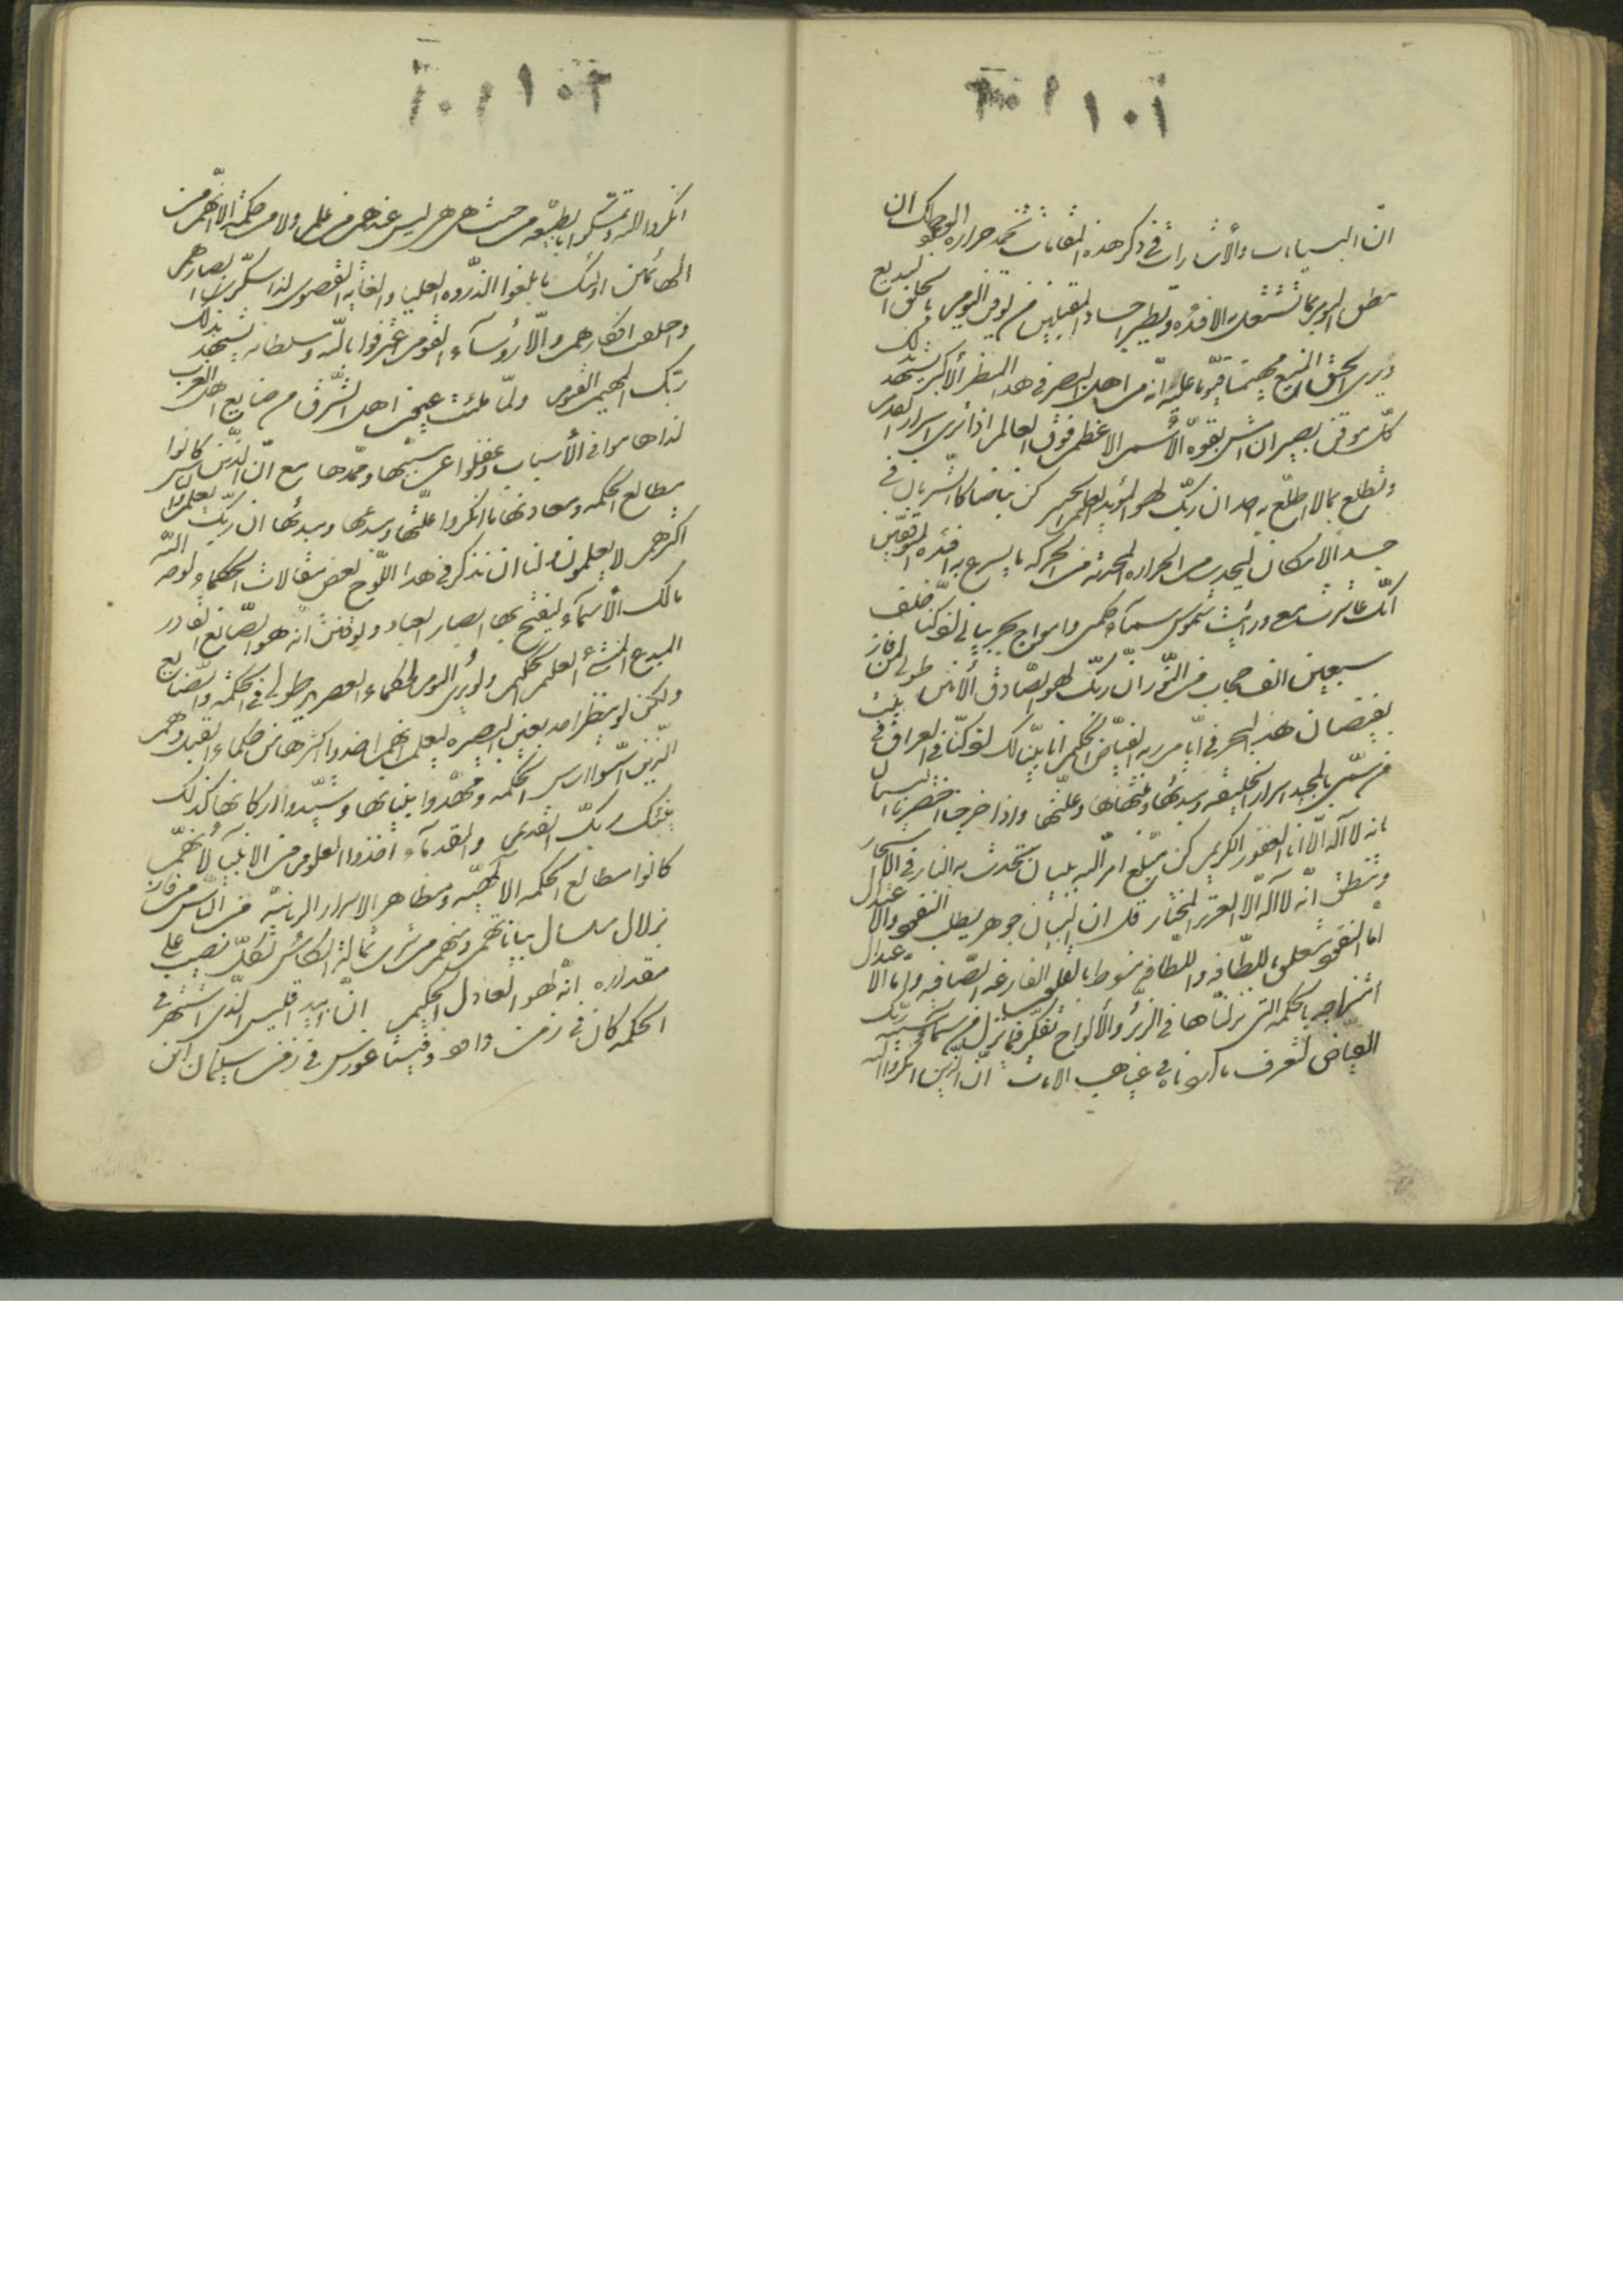 ١٠١
ان البيانات والأشارات في ذكر هذه المقامات تخمد حرارة الوجود لك ان
تنطق اليوم بما تشتعل به الافئدة وتطير اجساد المقبلين من يوقن اليوم بالخلق البديع
ويرى الحق المنيع مهيمنا قيوما عليه انه من اهل البصر في هذا المنظر الأكبر يشهد بذلك
كل موقن بصير ان امش بقوة الأسم الاعظم فوق العالم اذا ترى اسرار القدم
وتطلع بما لا اطلع به احد ان ربك لهو المؤيد العليم الخبير كن نباضا كالشريان في
جسد الامكان ليحدث من الحرارة المحدثة من الحركة ما يسرع به افئدة المتوقفين
انك عاشرت معي ورأيت شموس سماء حكمتي وامواج بحر بياني اذ كنا خلف
سبعين الف حجاب من النور ان ربك لهو الصادق الأمين طوبى لمن فاز
بفيضان هذا البحر في ايام ربه الفياض الحكيم انا بينا لك اذ كنا في العراق في بيت
من سمي بالمجيد اسرار الخليقة وبدئها ومنتهاها وعلتها واذا خرجنا اختصرنا البيان
بانه لا اله الا انا الغفور الكريم كن مبلغ امر الله ببيان تحدث به النار في الاشجار
وتنطق انه لا اله الا العزيز المختار قل ان البيان جوهر يطلب النفوذ والاعتدال
اما النفوذ معلق باللطافة واللطافة منوطة بالقلوب الفارغة الصافية واما الاعتدال
امتزاجه بالحكمة التي نزلناها في الزبر والألواح تفكر فيما نزل من سماء مشية ربك
الفياض لتعرف ما اردناه في غياهب الايات ان الذين انكروا الله
١٠٢
انكروا الله وتمسكوا بالطبيعة من حيث هي هي ليس عندهم من علم ولا من حكمة الا انهم من
الهائمين اولئك ما بلغوا الذروة العليا والغاية القصوى لذا سكرت ابصارهم
واختلفت افكارهم والا رؤساء القوم اعترفوا بالله وسلطانه يشهد بذلك
ربك المهيمن القيوم ولما ملئت عيون اهل الشرق من صنايع اهل الغرب
لذا هاموا في الأسباب وغفلوا عن مسببها وممدها مع ان الذين كانوا
مطالع الحكمة ومعادنها ما انكروا علتها ومبدعها ومبدئها ان ربك يعلم والناس
اكثرهم لا يعلمون ولنا ان نذكر في هذا اللوح بعض مقالات الحكماء لوجه الله
مالك الأسماء ليفتح بها ابصار العباد ويوقنن انه هو الصانع القادر
المبدع المنشئ العليم الحكيم ولو يرى اليوم لحكماء العصر يد طولى في الحكمة والصنايع
ولكن لو ينظر احد بعين البصيرة ليعلم انهم اخذوا اكثرها من حكماء القبل وهم
الذين اسسوا اساس الحكمة ومهدوا بنيانها وشيدوا اركانها كذلك
ينبئك ربك القديم والقدماء اخذوا العلوم من الانبياء لأنهم
كانوا مطالع الحكمة الالهية ومظاهر الاسرار الربانية من الناس من فاز
بزلال سلسال بياناتهم ومنهم من شرب ثمالة الكأس لكل نصيب على
مقداره انه لهو العادل الحكيم ان ابيد قليس الذي اشتهر في
الحكمة كان في زمن داود وفيثاغورس في زمن سليمان ابن